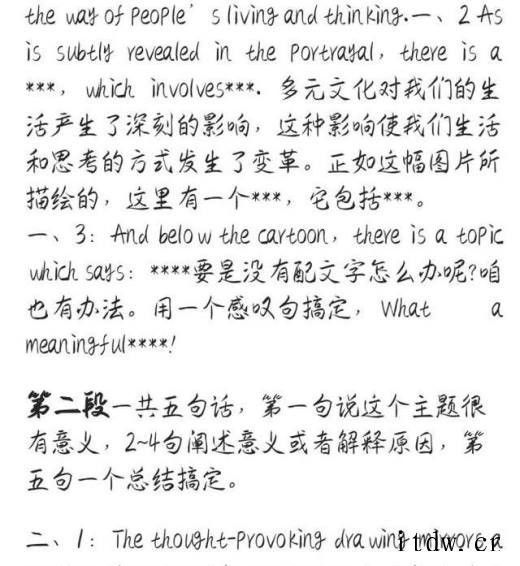 the way of people’s living and thinking.一、2 As
is subtly revealed in the portrayal, there is a
***, which involves***. 多元文化对我们的生
活产生了深刻的影响，这种影响使我们生活
和思考的方式发生了变革。正如这幅图片所
描绘的，这里有一个***，它包括***。
一、3：And below the cartoon, there is a topic
which says：****要是没有配文字怎么办呢?咱
也有办法。用一个感叹句搞定，What a
meaningful****!
第二段一共五句话，第一句说这个主题很
有意义，2~4句阐述意义或者解释原因，第
五句一个总结搞定。
二、1：The thought-provoking drawing mirrors a
itdw.cn